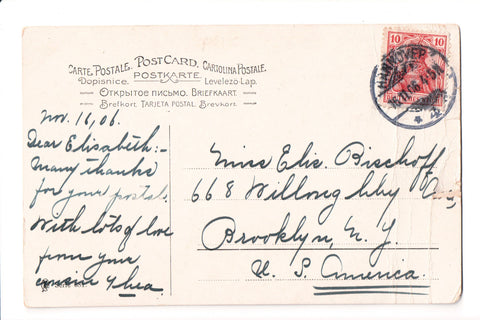 CARTE POSTALE. POST CARD. CARTOLINA POSTALE.
Dopisnice. POSTKARTE. Levelezö Lap.
ОТКРЫТОЕ ПИСЬМО. BRIEFKAART.
Brefkort TARJETA POSTAL. Brevkort.
10 10
HANNOVER
Nov. 16, 06.
Dear Elisabeth:-
Many thanks
for your postal.
With lots of love
from your
cousin Thea
Miss Elis. Bischoff
668 Willoughby Av,
Brooklyn, N. Y.
U. S. America.